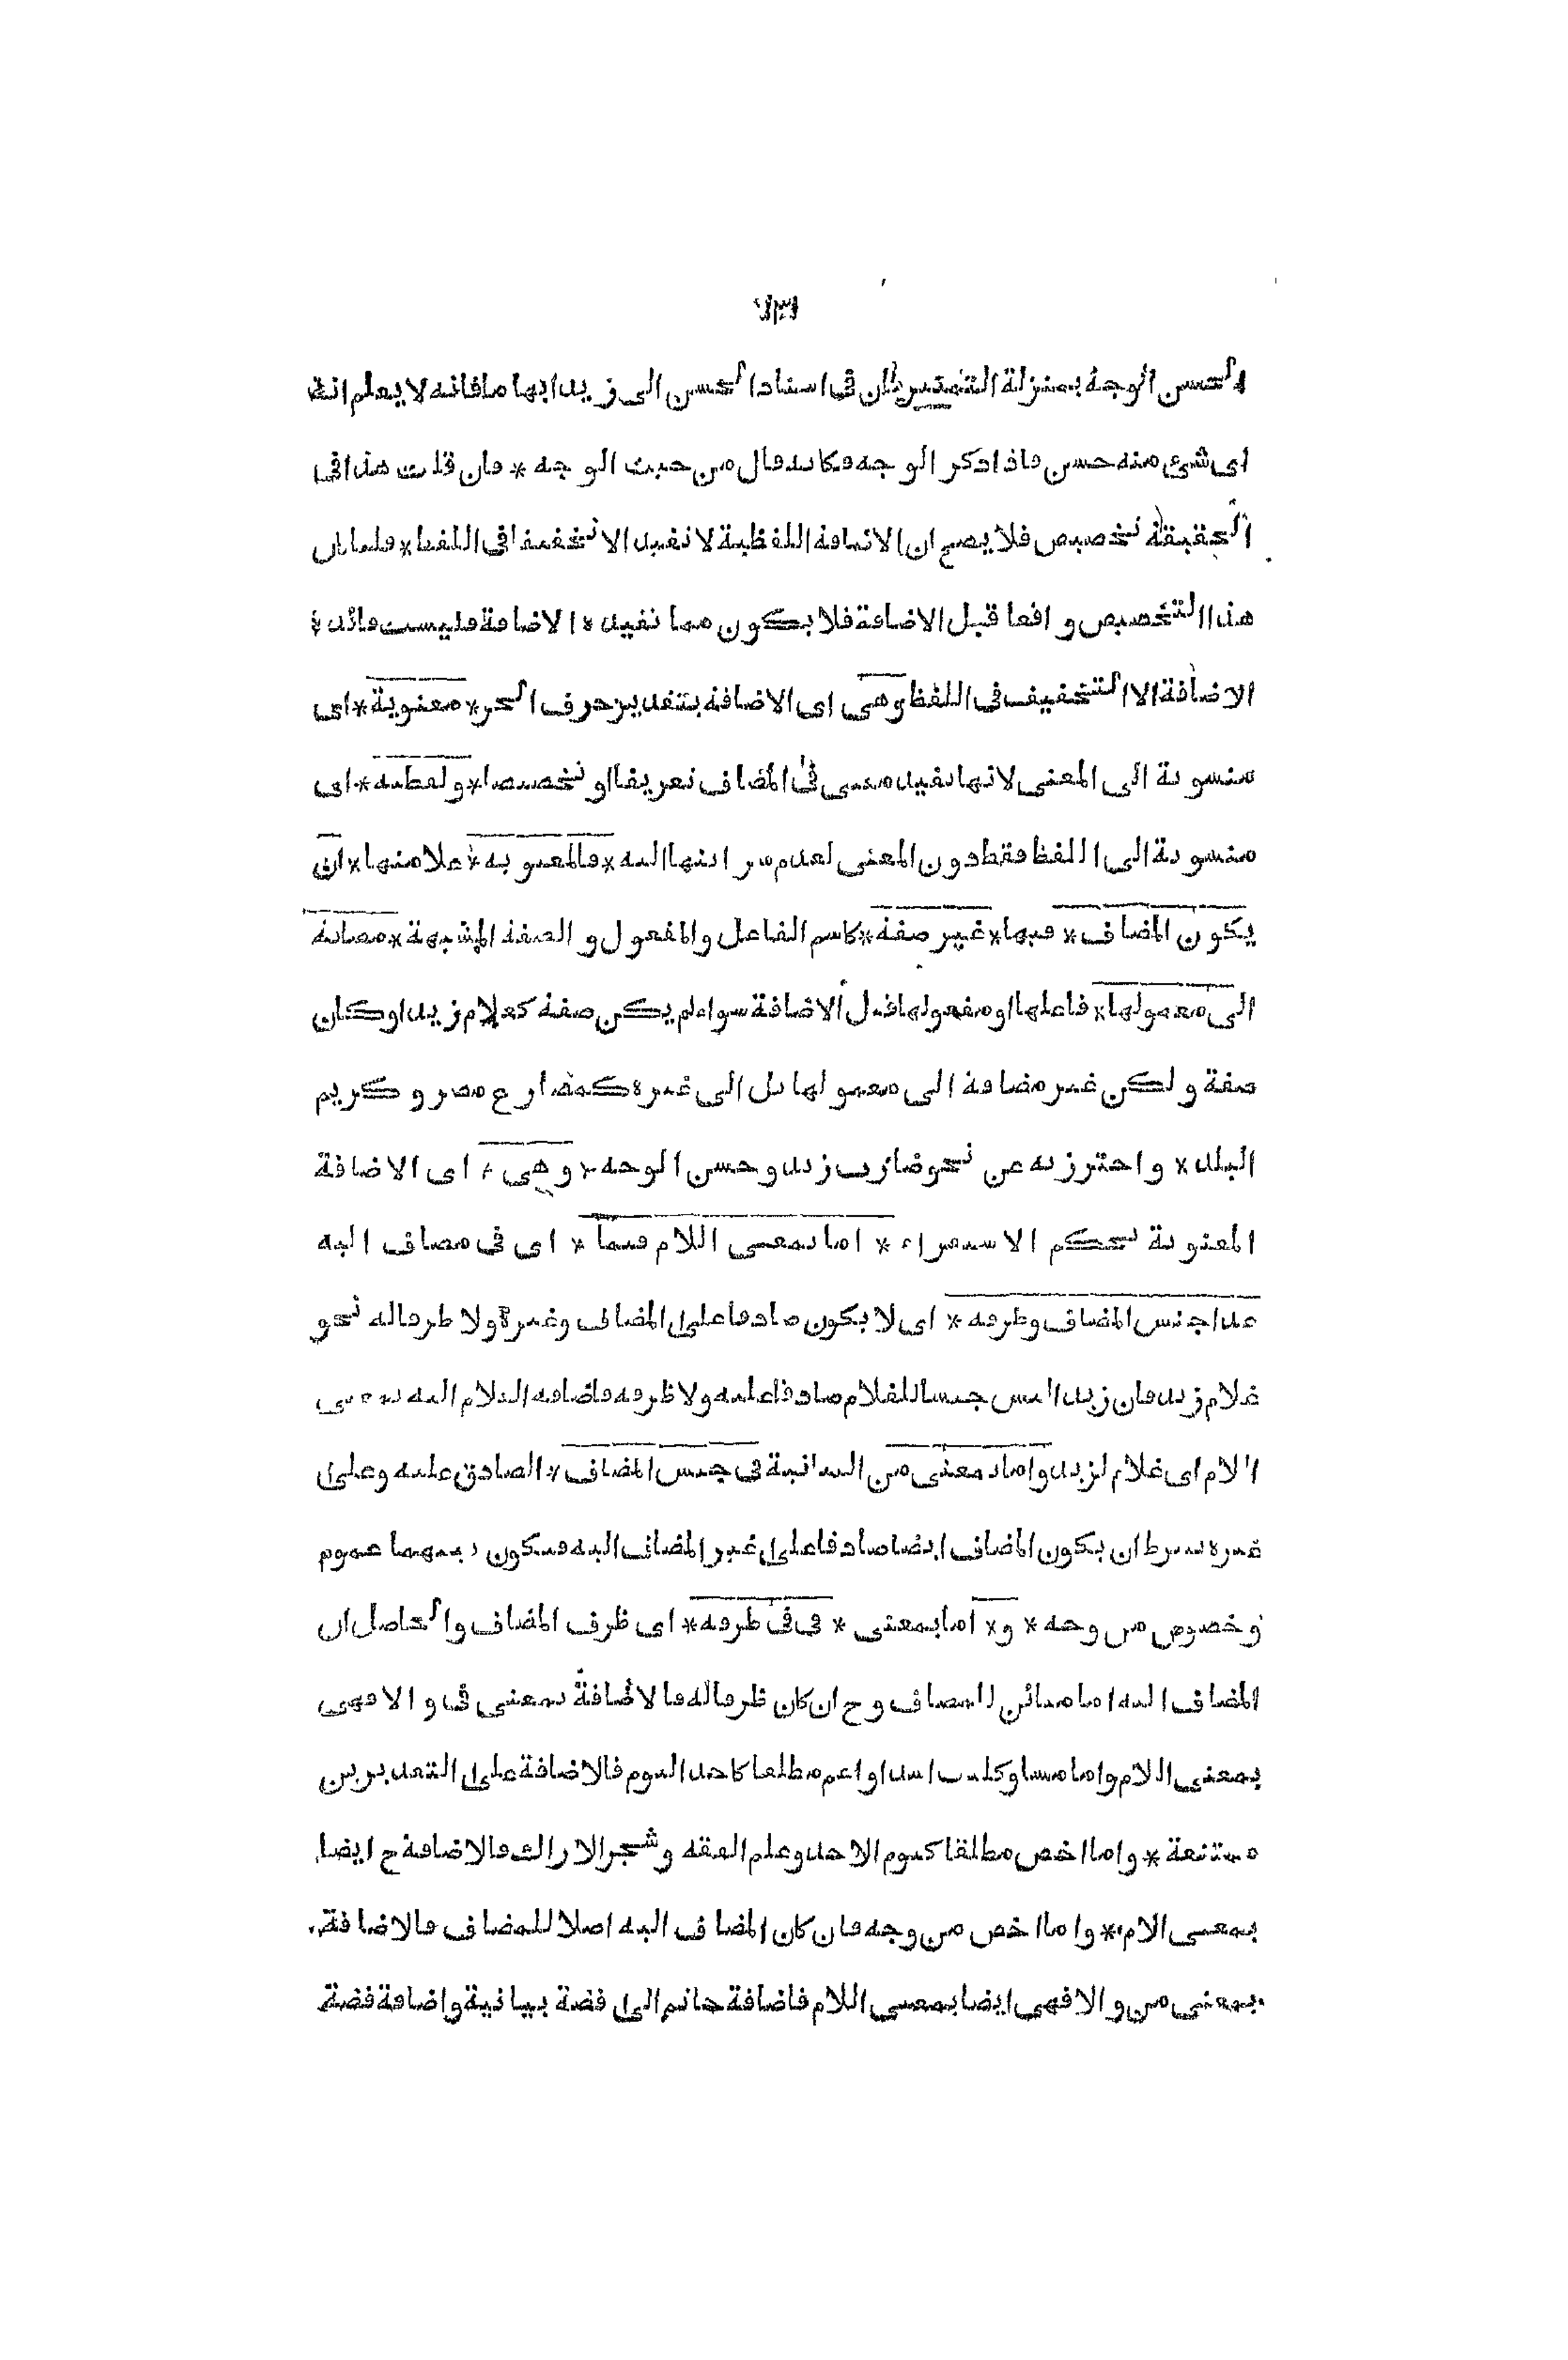 ١٣٧
الحسن الوجه بمنزلة التمييز فان فى اسناد الحسن الى زيد ابهاما فانه لا يعلم انه
اى شئ منه حسن فاذا ذكر الوجه فكانه قال من حيث الوجه * فان قلت هذا فى
الحقيقة تخصيص فلا يصح ان الاضافة اللفظية لا تفيد الا تخفيفا فى اللفظ * قلنا كان
هذا التخصيص واقعا قبل الاضافة فلا يكون مما تفيده الاضافة فليست فائدة
الاضافة الا التخفيف فى اللفظ وهى اى الاضافة بتقدير حرف الجر * معنوية * اى
منسوبة الى المعنى لانها تفيد معنى فى المضاف تعريفا او تخصيصا * ولفظية * اى
منسوبة الى اللفظ فقط دون المعنى لعدم سرايتها اليه * فالمعنوية * علامتها * ان
يكون المضاف * فيها * غير صفة * كاسم الفاعل والمفعول و الصفة المشبهة * مضافة
الى معمولها * فاعلها او مفعولها قبل الاضافة سواء لم يكن صفة كغلام زيد او كان
صفة ولكن غير مضافة الى معمولها بل الى غيره كمصارع مصر و كريم
البلد * و احترز به عن نحو ضارب زيد و حسن الوجه * وهى * اى الاضافة
المعنوية بحكم الاستقراء * اما بمعنى اللام فيما * اى فى مضاف اليه
عدا جنس المضاف وظرفه * اى لا يكون صادقا على المضاف وغيره ولا ظرفا له نحو
غلام زيد فان زيدا ليس جنسا للغلام صادقا عليه ولا ظرفه فاضافة الغلام اليه بمعنى
اللام اى غلام لزيد واما بمعنى من البيانية فى جنس المضاف * الصادق عليه وعلى
غيره بشرط ان يكون المضاف ايضا صادقا على غير المضاف اليه فيكون بينهما عموم
وخصوص من وجه * و * اما بمعنى * فى فى ظرفه * اى ظرف المضاف والحاصل ان
المضاف اليه اما مباين للمضاف وح ان كان ظرفا له فالاضافة بمعنى فى و الا فهى
بمعنى اللام واما مساو كليث اسد او اعم مطلقا كاحد اليوم فالاضافة على التقديرين
ممتنعة * واما اخص مطلقا كيوم الاحد وعلم الفقه و شجر الاراك فالاضافة ح ايضا
بمعنى الام * واما اخص من وجه فان كان المضاف اليه اصلا للمضاف فالاضافة
بمعنى من و الا فهى ايضا بمعنى اللام فاضافة خاتم الى فضة بيانية واضافة فضة